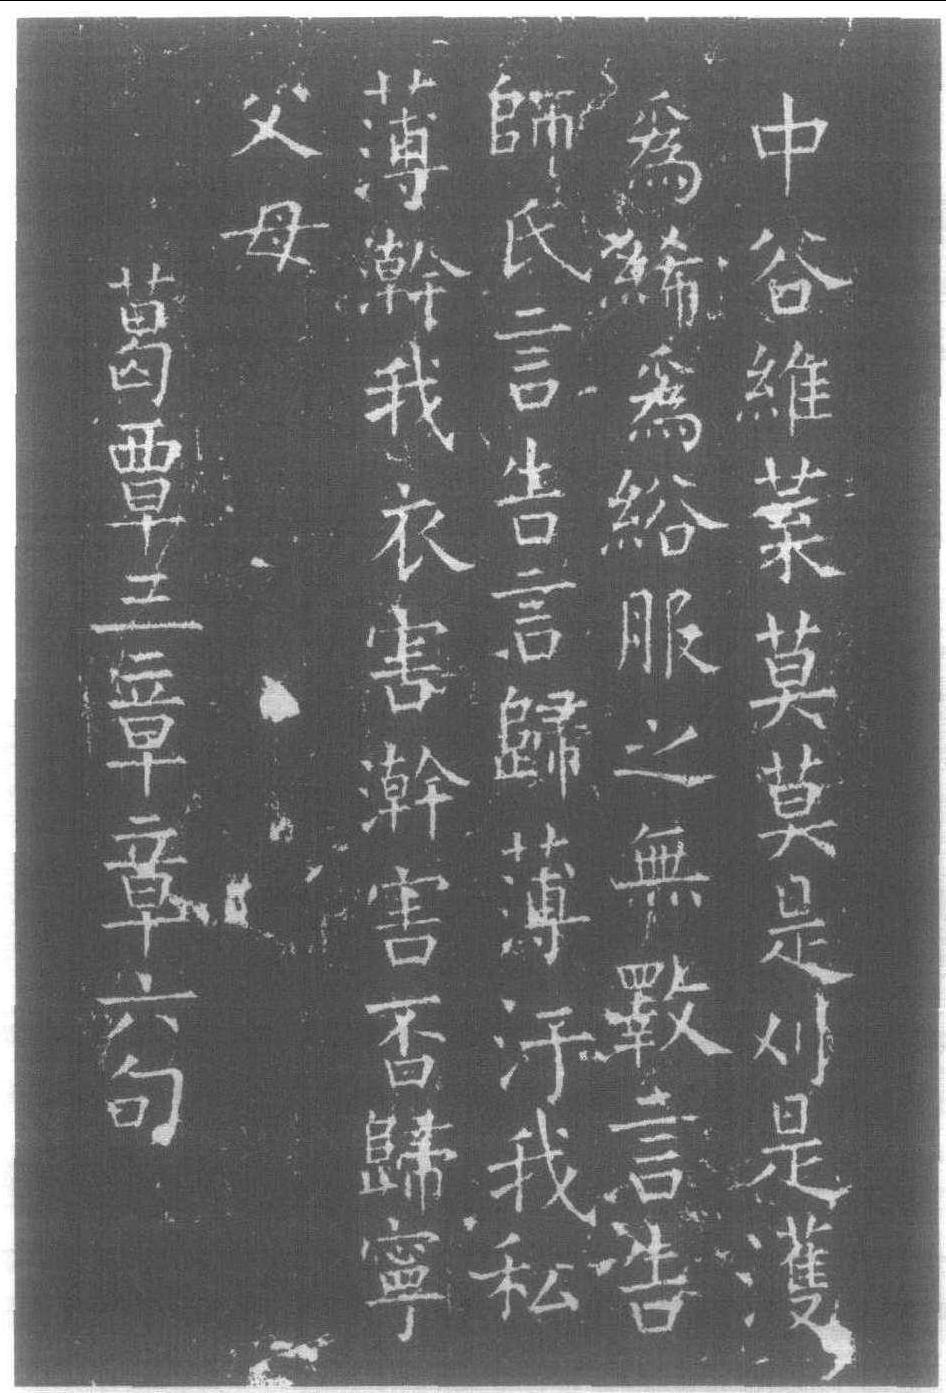 中谷維葉莫莫是刈是濩
爲絺爲綌服之無斁言告
師氏言告言歸薄汙我私
薄澣我衣害澣害否歸寧
父母
葛覃三章章六句